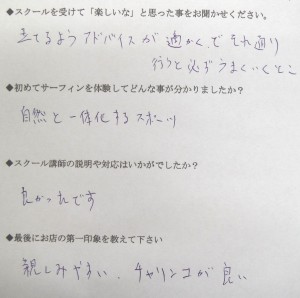 ◆スクールを受けて「楽しいな」と思った事をお聞かせください。
立てるようアドバイスが適かくでそれ通り
行うと必ずうまくいくとこ
◆初めてサーフィンを体験してどんな事が分かりましたか？
自然と一体化するスポーツ
◆スクール講師の説明や対応はいかがでしたか？
良かったです
◆最後にお店の第一印象を教えて下さい
親しみやすい、チャリンコが良い